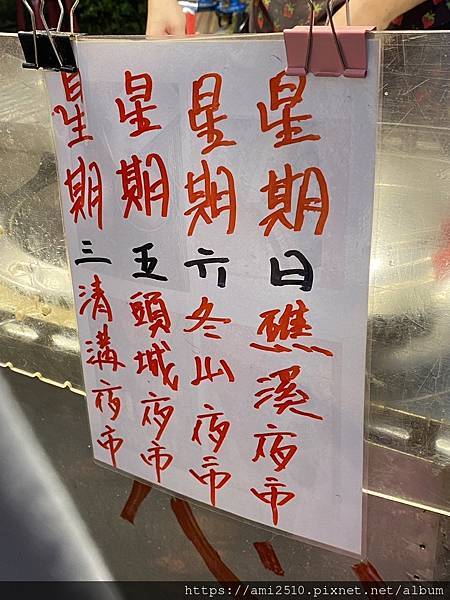 星期日礁溪夜市
星期六冬山夜市
星期五頭城夜市
星期三清溝夜市
https://ami2510.pixnet.net/album